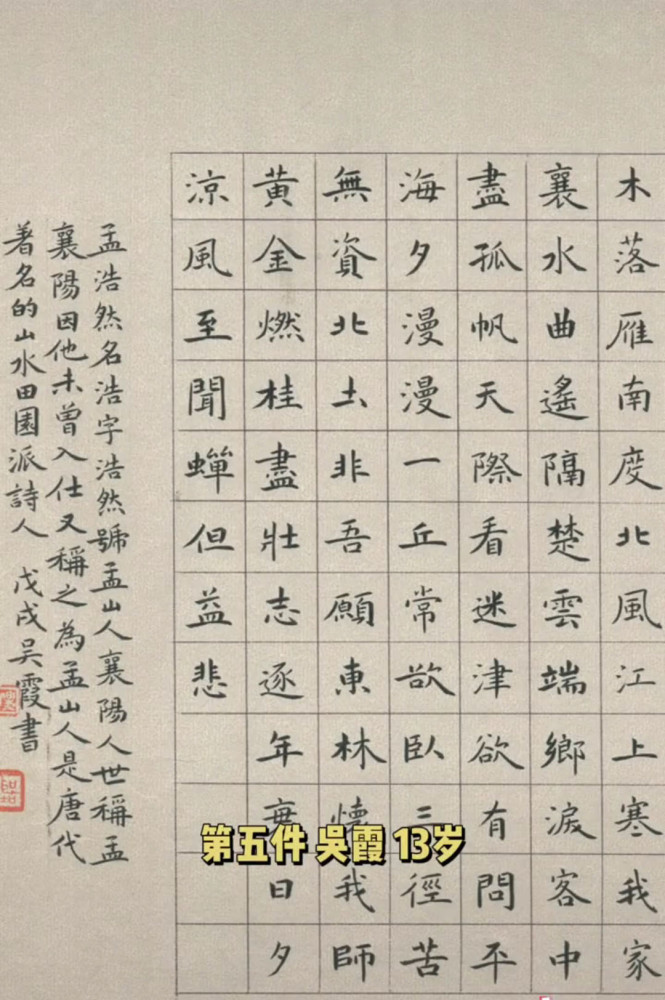 木落雁南度北風江上寒我家
襄水曲遙隔楚雲端鄉淚客中
盡孤帆天際看迷津欲有問平
海夕漫漫一丘常欲臥三徑苦
無資北土非吾願東林懷我師
黃金燃桂盡壯志逐年衰日夕
涼風至聞蟬但益悲
孟浩然名浩字浩然號孟山人襄陽人世稱孟
襄陽因他未曾入仕又稱之為孟山人是唐代
著名的山水田園派詩人 戊戌吳霞書
第五件 吳霞 13岁